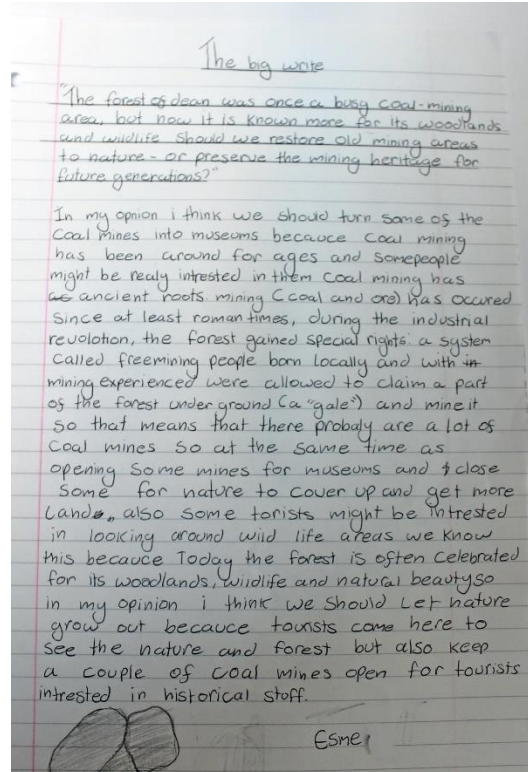 The big write
"The forest of dean was once a busy coal-mining
area, but now it is known more for its woodlands
and wildlife should we restore old mining areas
to nature - or preserve the mining heritage for
future generations?"
In my opnion i think we should turn some of the
Coal mines into museums becauce coal mining
has been around for ages and somepeople
might be realy intrested in them Coal mining has
as ancient roots mining (coal and ore) has occured
since at least roman times, during the industrial
revolotion, the forest gained special rights: a system
called freemining people born locally and with in
mining experienced were allowed to claim a part
of the forest under ground (a "gale") and mine it
so that means that there probaly are a lot of
coal mines so at the same time as
opening some mines for museums and close
some for nature to cover up and get more
land, also some torists might be intrested
in looking around wild life areas we know
this becauce Today the forest is often celebrated
for its woodlands, wildlife and natural beauty so
in my opinion i think we should let nature
grow out becauce tourists come here to
see the nature and forest but also keep
a couple of coal mines open for tourists
intrested in historical stoff.
Esme